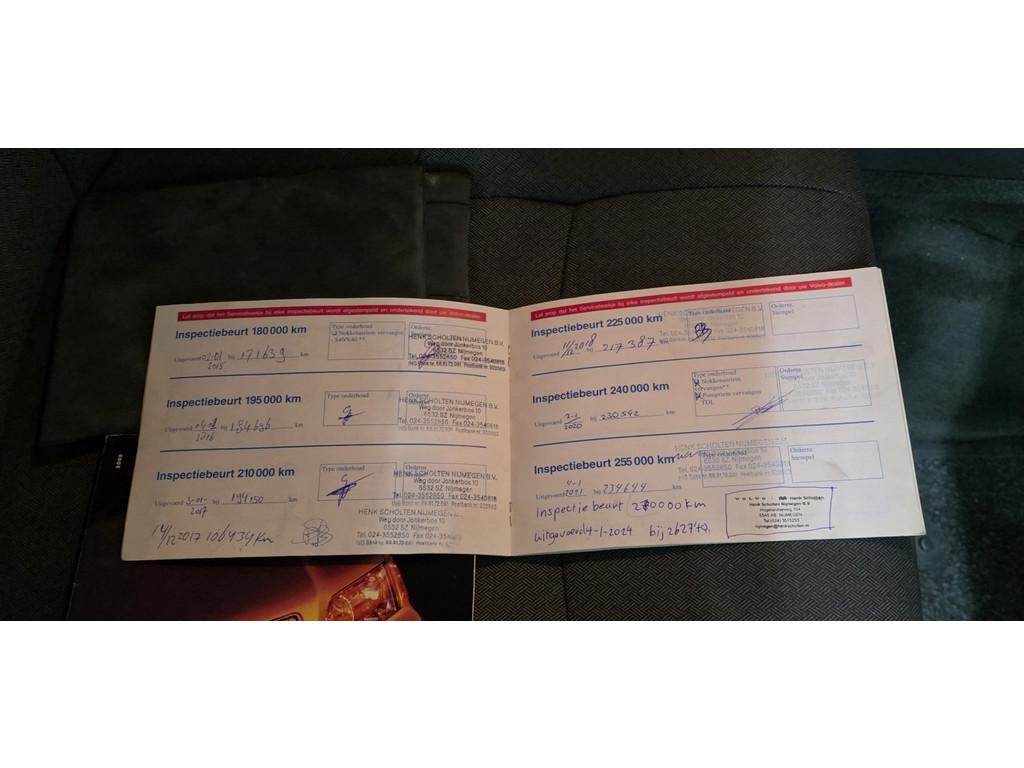 Let erop dat het Serviceboekje bij elke inspectiebeurt wordt afgestempeld en ondertekend door uw Volvo-dealer.
Inspectiebeurt 180 000 km
Type onderhoud
Nokkenasriem vervangen
S40/V40 **
HENK SCHOLTEN NIJMEGEN B.V.
Weg door Jonkerbos 10
6532 SZ Nijmegen
Tel. 024-3552850 Fax 024-3540818
Uitgevoerd 02-01 2015 bij 171639 km
Inspectiebeurt 195 000 km
Type onderhoud
HENK SCHOLTEN NIJMEGEN B.V.
Weg door Jonkerbos 10
6532 SZ Nijmegen
Tel. 024-3552850 Fax 024-3540818
Uitgevoerd 2016 bij 184696 km
Inspectiebeurt 210 000 km
Type onderhoud
HENK SCHOLTEN NIJMEGEN B.V.
Weg door Jonkerbos 10
6532 SZ Nijmegen
Tel. 024-3552850 Fax 024-3540818
Uitgevoerd 3-01-2017 bij 194150 km
HENK SCHOLTEN NIJMEGEN
Weg door Jonkerbos 10
6532 SZ Nijmegen
Tel. 024-3552850 Fax 024-3540
14/12 2017
Let erop dat het Serviceboekje bij elke inspectiebeurt wordt afgestempeld en ondertekend door uw Volvo-dealer.
Inspectiebeurt 225 000 km
Type onderhoud
Ordernr.
Stempel
HENK SCHOLTEN NIJMEGEN B.V.
Uitgevoerd 11/12 2018 bij 217387 km
Inspectiebeurt 240 000 km
Type onderhoud
Nokkenasriem
vervangen**
Pompriem vervangen
TDI.
Ordernr.
Stempel
Uitgevoerd 2020 bij 230542 km
Inspectiebeurt 255 000 km
HENK SCHOLTEN NIJMEGEN
Tel. 024-3552850 Fax 024-3540818
Ordernr.
Stempel
Uitgevoerd 4-1 2021 bij 234644 km
Inspectie beurt 270000 km
uitgevoerd 4-1-2024 bij
VOLVO Henk Scholten
Henk Scholten Nijmegen B.V.
6545 AB NIJMEGEN
nijmegen@henkscholten.nl